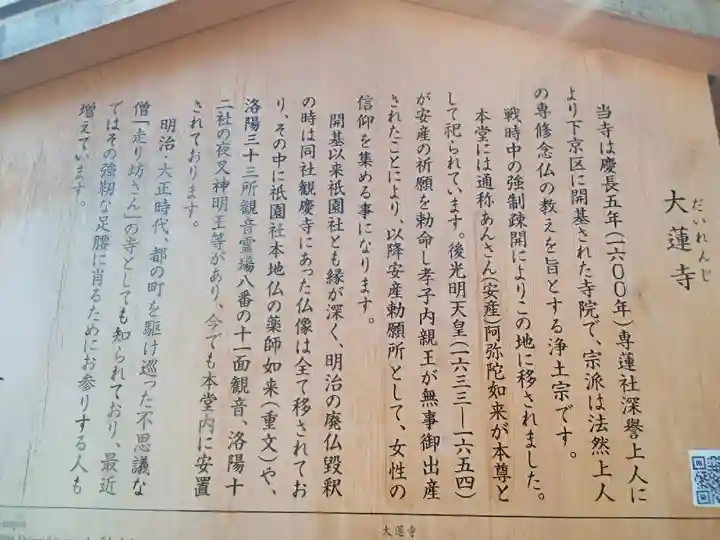 だいれんじ
大蓮寺
当寺は慶長五年(一六〇〇年)専蓮社深誉上人に
より下京区に開基された寺院で、宗派は法然上人
の専修念仏の教えを旨とする浄土宗です。
戦時中の強制疎開によりこの地に移されました。
本堂には通称あんさん(安産)阿弥陀如来が本尊と
して祀られています。後光明天皇(一六三三―一六五四)
が安産の祈願を勅命し孝子内親王が無事御出産
されたことにより、以降安産勅願所として、女性の
信仰を集める事になります。
開基以来祇園社とも縁が深く、明治の廃仏毀釈
の時は同社観慶寺にあった仏像は全て移されてお
り、その中に祇園社本地仏の薬師如来(重文)や、
洛陽三十三所観音霊場八番の十一面観音、洛陽十
二社の夜叉神明王等があり、今でも本堂内に安置
されております。
明治・大正時代、都の町を駆け巡った不思議な
僧「走り坊さん」の寺としても知られており、最近
ではその強靭な足腰に肖るためにお参りする人も
増えています。
大蓮寺